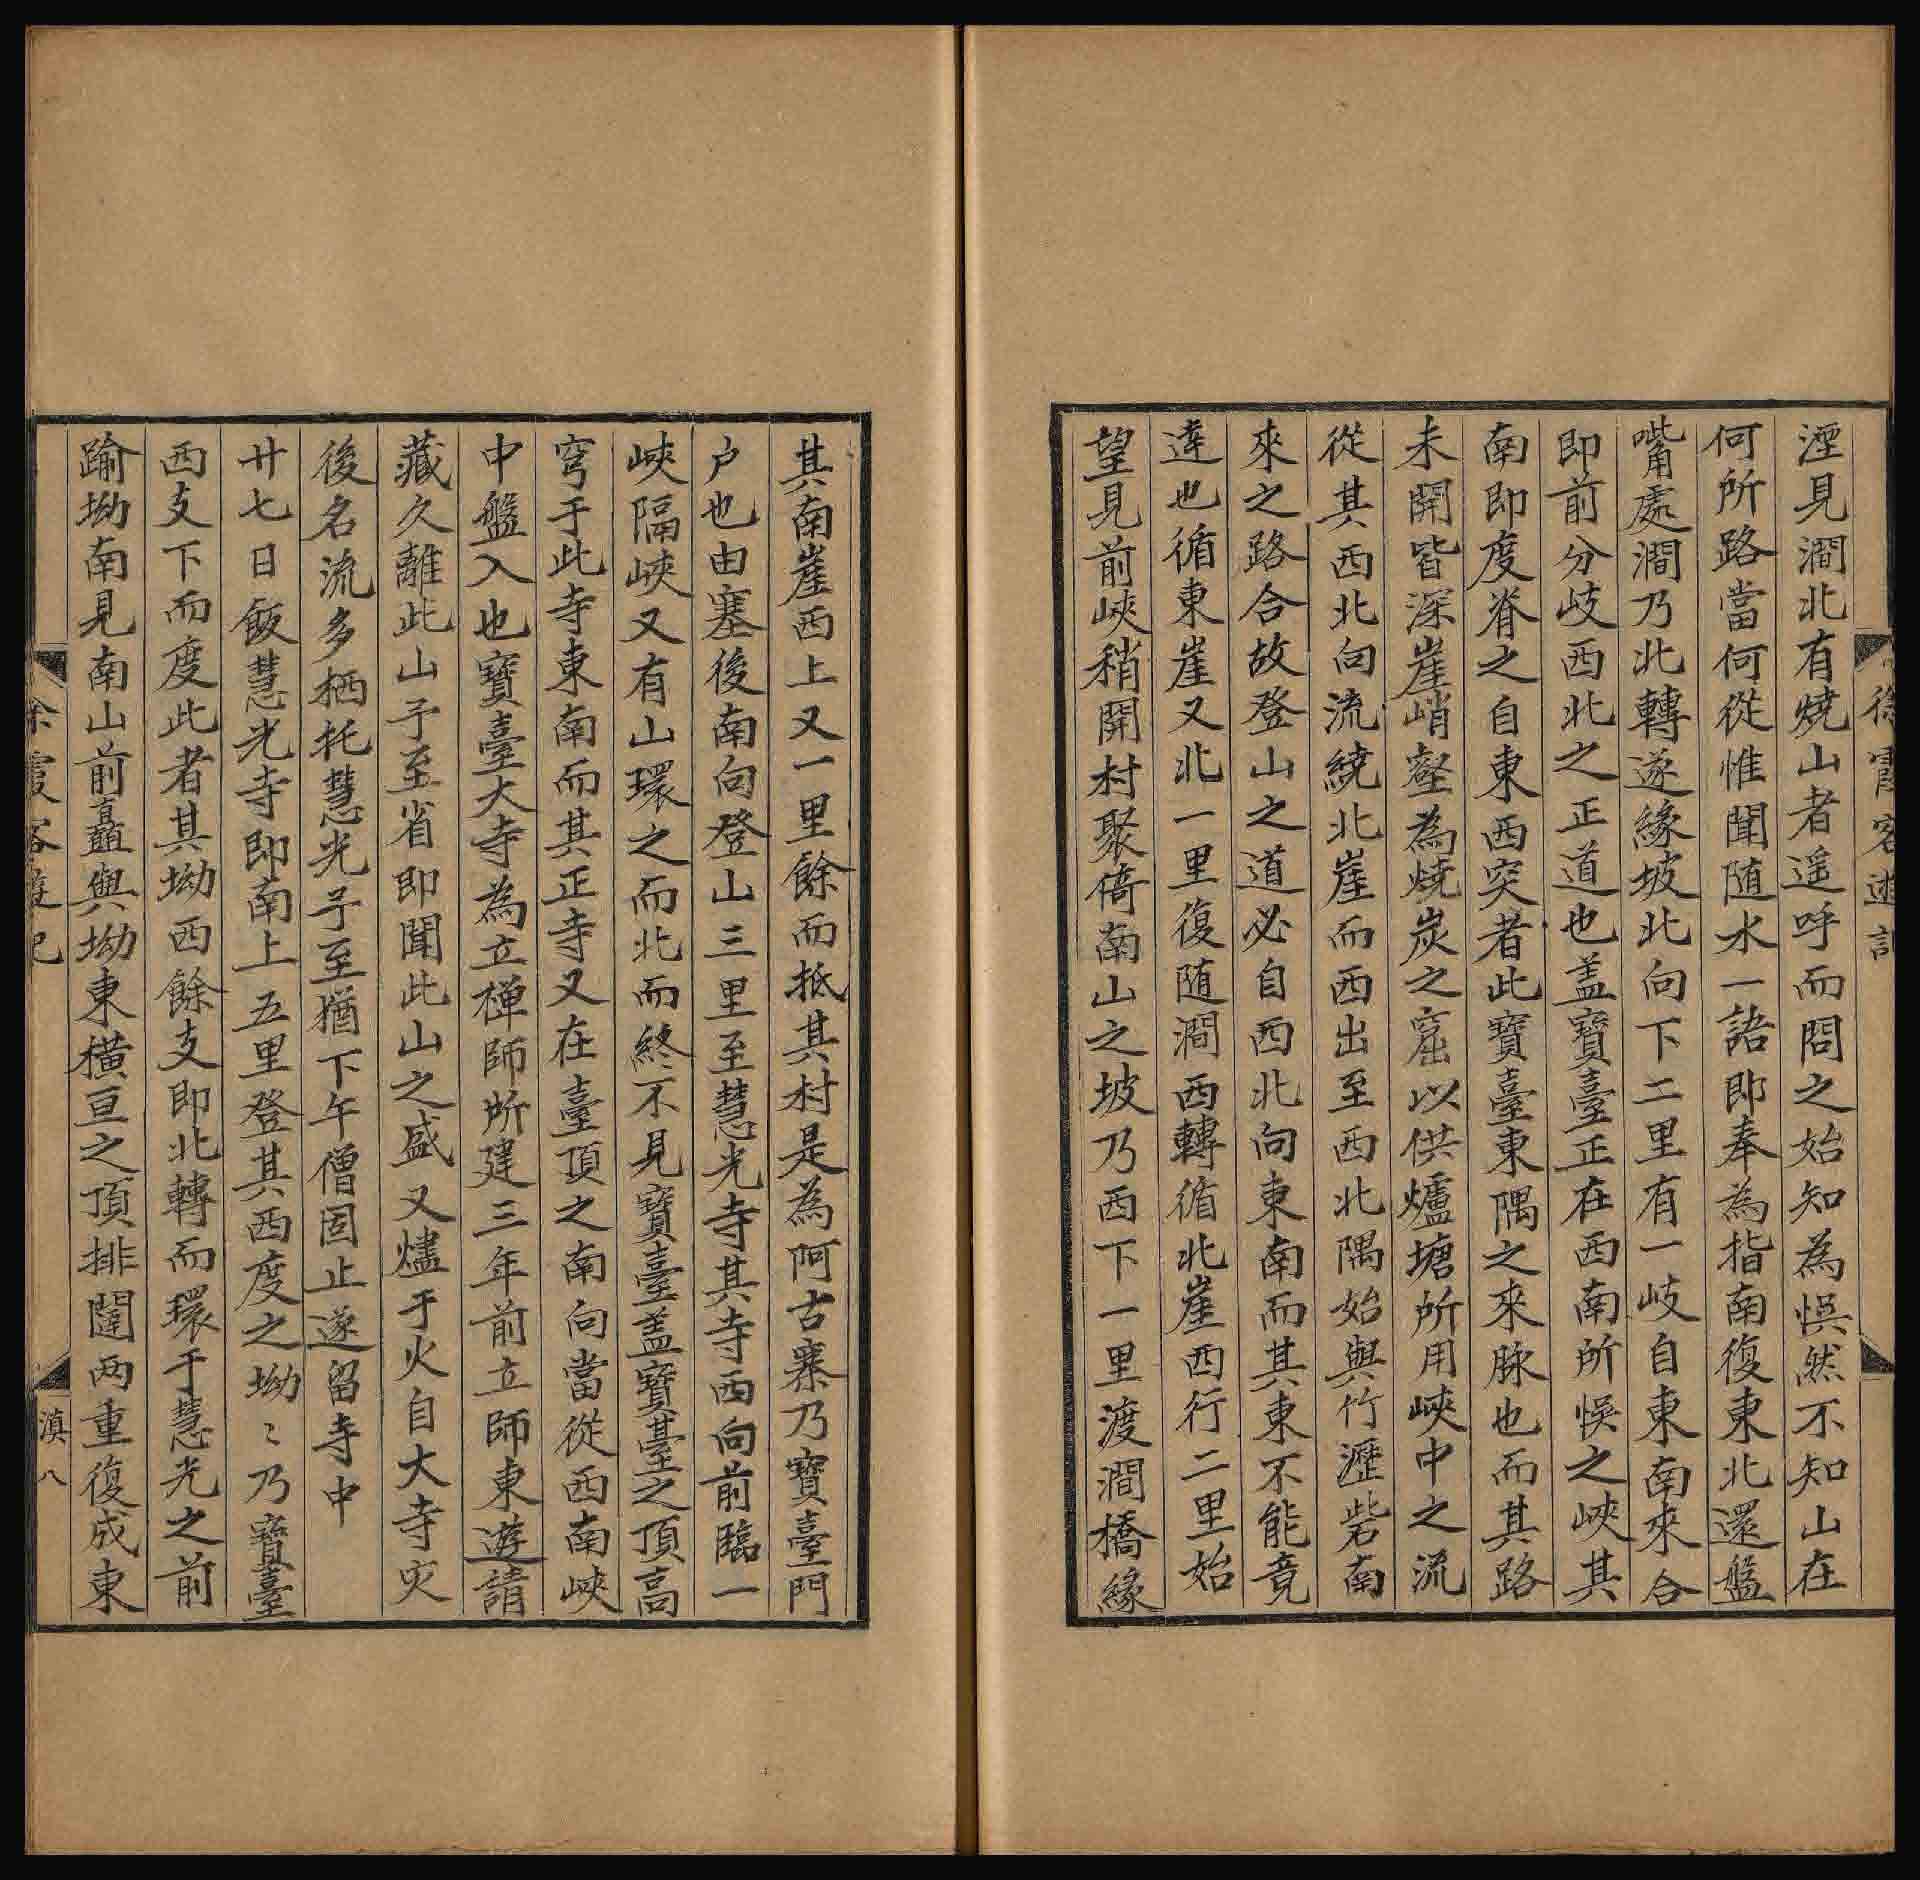 徐霞客遊記
湮見澗北有燒山者遥呼而問之始知為悞然不知山在
何所路當何從惟聞随水一語即奉為指南復東北還盤
嘴處澗乃北轉遂緣坡北向下二里有一岐自東南來合
即前分岐西北之正道也盖寶臺正在西南所悞之峽其
南即度脊之自東西突者此寶臺東隅之來脉也而其路
未開皆深崖峭壑為燒炭之窟以供爐塘所用峽中之流
從其西北向流繞北崖而西出至西北隅始與竹瀝砦南
來之路合故登山之道必自西北向東南而其東不能竟
達也循東崖又北一里復随澗西轉循北崖西行二里始
望見前峽稍開村聚倚南山之坡乃西下一里渡澗橋緣
其南崖西上又一里餘而抵其村是為阿古寨乃寶臺門
户也由塞後南向登山三里至慧光寺其寺西向前臨一
峽隔峽又有山環之而北而終不見寶臺盖寶臺之頂高
穹于此寺東南而其正寺又在臺頂之南向當從西南峽
中盤入也寶臺大寺為立禅師所建三年前立師東遊請
藏久離此山予至省即聞此山之盛又燼于火自大寺灾
後名流多栖托慧光予至猶下午僧固止遂留寺中
廿七日飯慧光寺即南上五里登其西度之坳〻乃寶臺
西支下而度此者其坳西餘支即北轉而環于慧光之前
踰坳南見南山前矗與坳東横亘之頂排闥两重復成東
徐霞客遊記
滇八